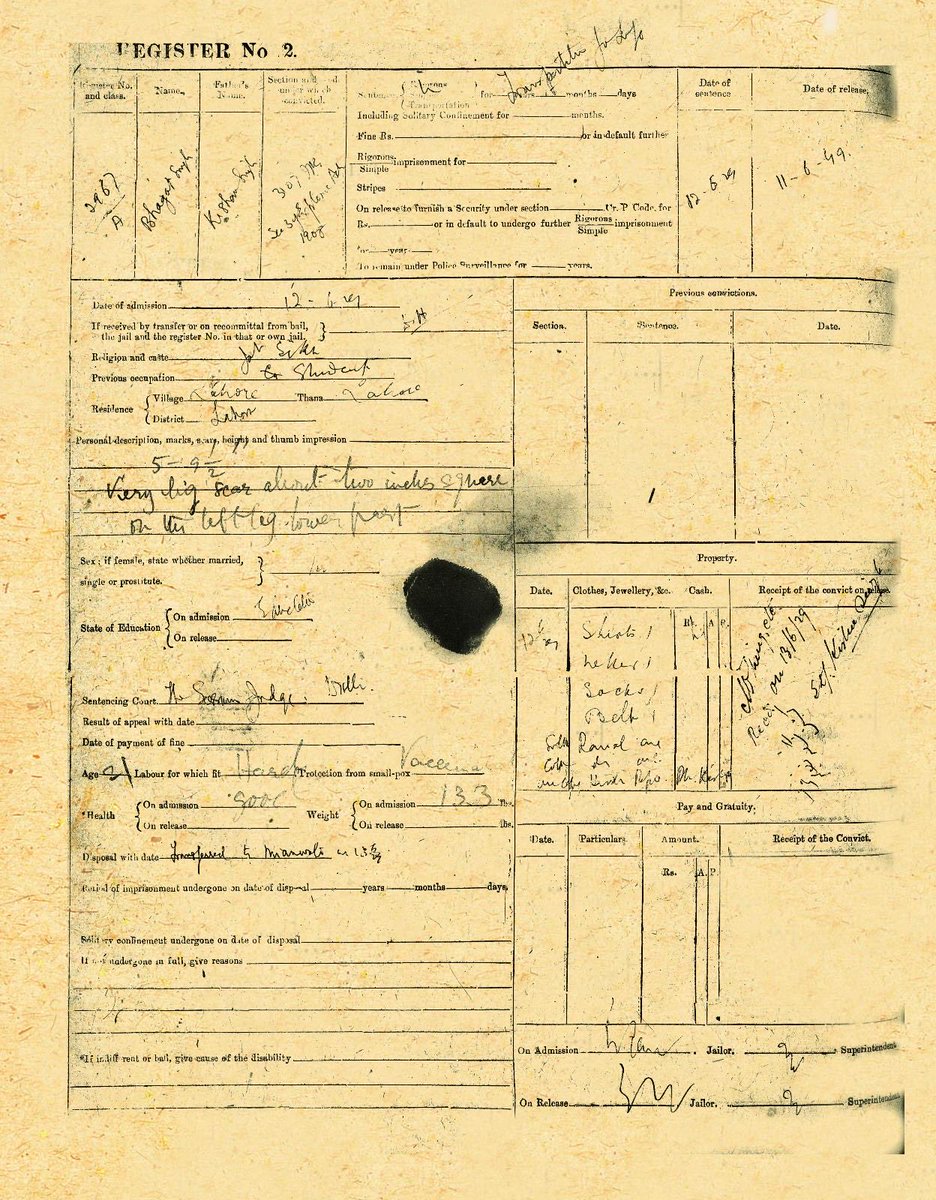 REGISTER No 2.
Transportation for Life
Register No. and class.
Name.
Father's Name.
Section and under which convicted.
Sentence Transportation for months days
Date of sentence
Date of release.
Including Solitary Confinement for months.
Fine Rs. or in default further
Rigorous Simple imprisonment for
Stripes
On release to furnish a Security under section Cr. P. Code, for
Rs. or in default to undergo further Rigorous Simple imprisonment
for year
To remain under Police Surveillance for years.
2967 A
Bhagat Singh
Kishan Singh
1908
12-6-29
11-6-49.
Date of admission 12-6-29
If received by transfer or on recommittal from bail,
the jail and the register No. in that or own jail.
Religion and caste Jat Sikh
Previous occupation Student
Residence Village Lahore Thana Lahore
District Lahore
Personal description, marks, scars, height and thumb impression
5-9 1/2
Very big scar about two inches square
on the left leg lower part
Sex; if female, state whether married,
single or prostitute.
State of Education On admission
On release
Sentencing Court. The Session Judge. Delhi.
Result of appeal with date
Date of payment of fine
Age 21 Labour for which fit Hard Protection from small-pox
Health On admission good Weight On admission 133 lbs.
On release On release lbs.
Disposal with date Transferred to Mianwali
Period of imprisonment undergone on date of disposal years months days.
Solitary confinement undergone on date of disposal
If not undergone in full, give reasons
*If indifferent or bad, give cause of the disability
Previous convictions.
Section. Sentence. Date.
Property.
Date. Clothes, Jewellery, &c. Cash. Receipt of the convict on release.
Rs. A. P.
Shirts 1
Socks 1
Belt 1
on 13/6/29
Pay and Gratuity.
Date. Particulars. Amount. Receipt of the Convict.
Rs. A. P.
On Admission Jailor. Superintendent
On Release Jailor. Superintendent